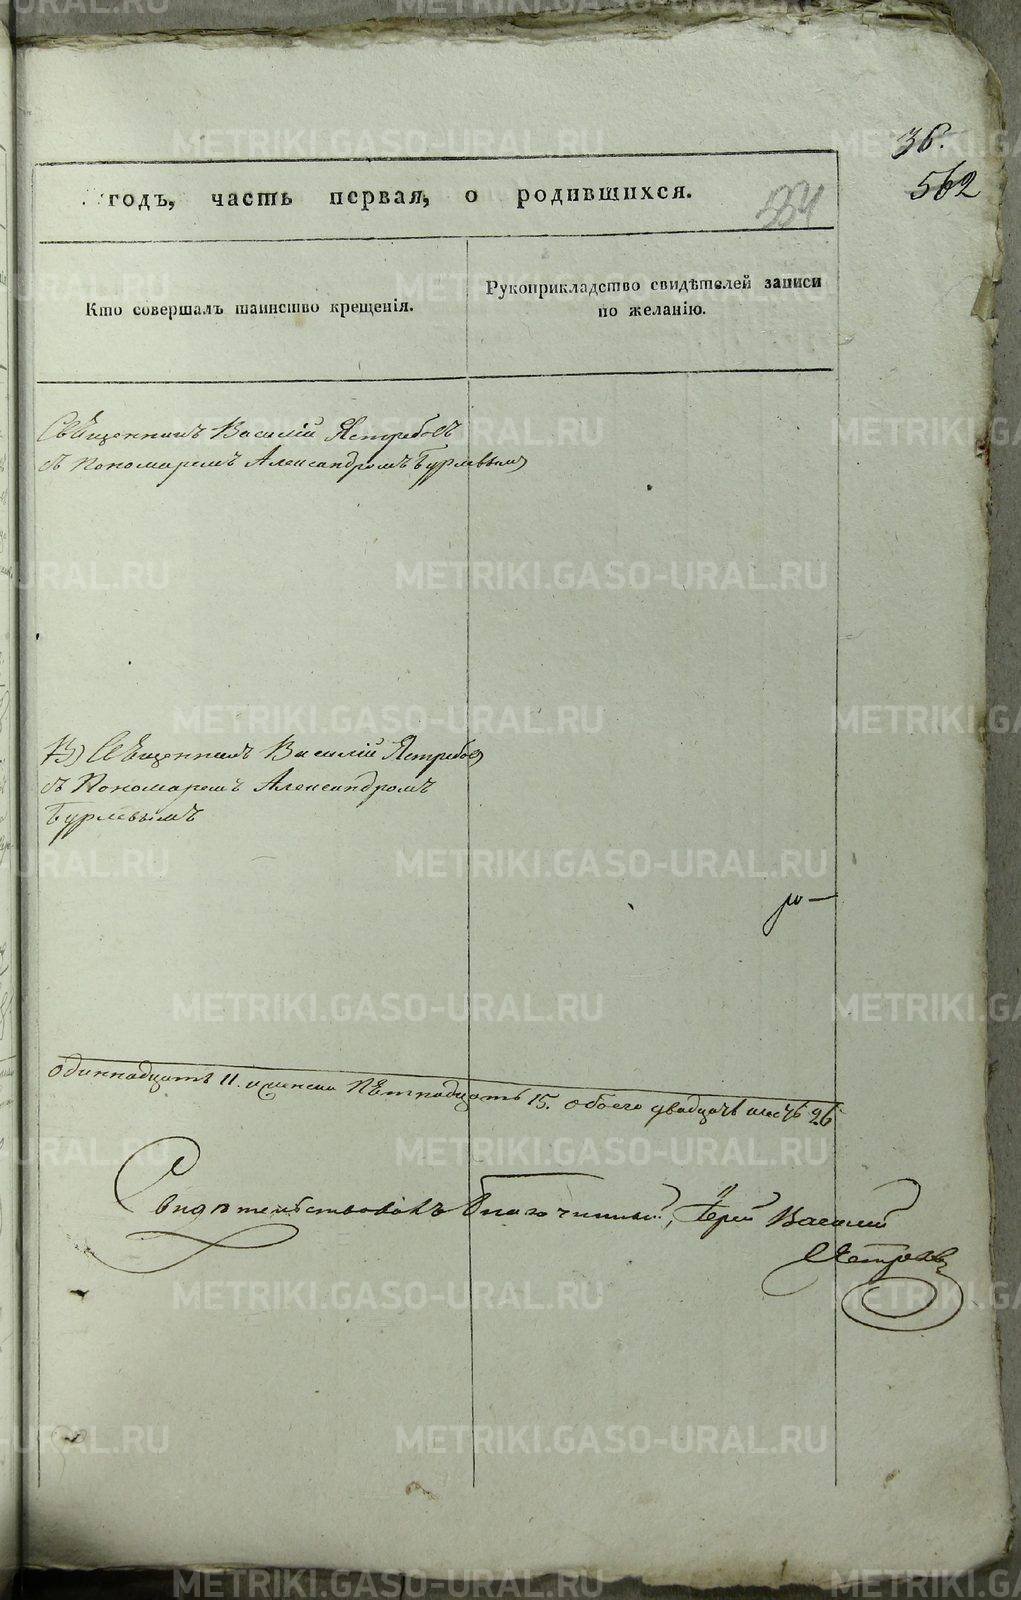 36.
562
годъ, часть первая, о родившихся.
554
Кто совершалъ таинство крещенія.
Рукоприкладство свидѣтелей записи
по желанію.
Священникъ Василій Ястребовъ
съ Пономаремъ Александромъ Бурлевымъ
Священникъ Василій Ястребовъ
съ Пономаремъ Александромъ
Бурлевымъ
ро—
одиннадцать 11. и женска пѣтнадцать 15. обоего двадцать шесть 26
Свидѣтельствовалъ Благочинный, Іерей Василій
METRIKI.GASO-URAL.RU